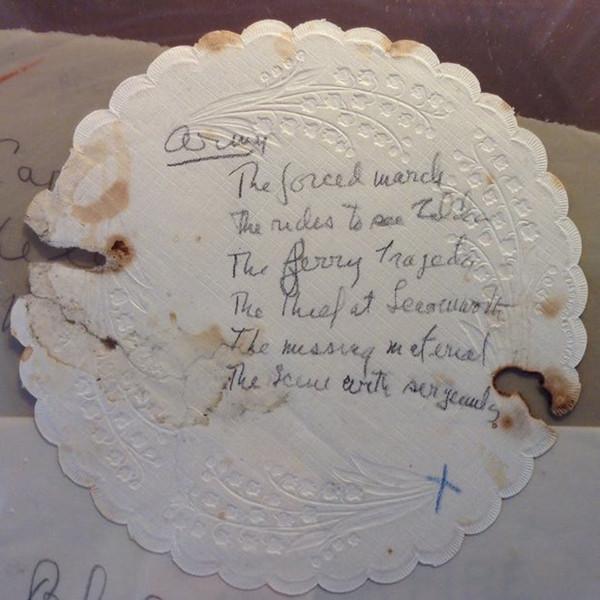 Army
The forced march
The rides to see
The ferry Tragedy
The Thief at
The missing material
The scene with sergeants